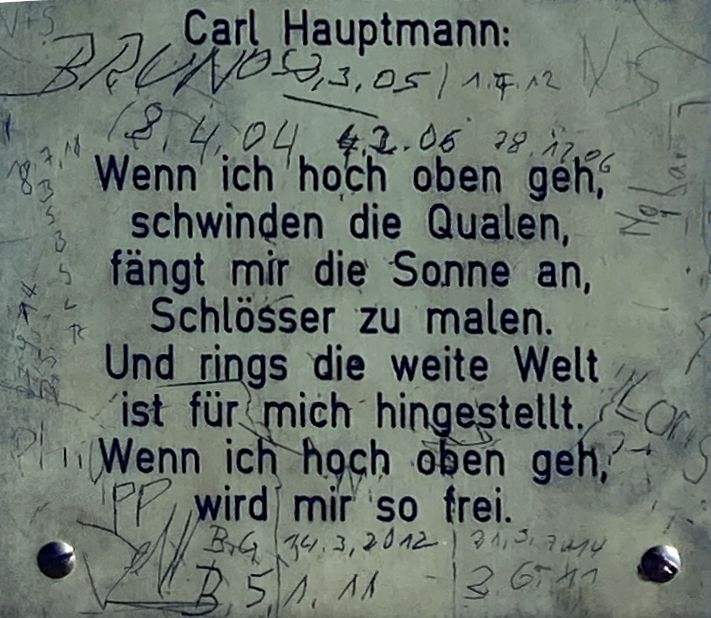 V+S
Carl Hauptmann:
BRUNO 3,3,05 / 1.7.12
N+S
18.4.04 4.2.06 28.12.06
Wenn ich hoch oben geh,
schwinden die Qualen,
fängt mir die Sonne an,
Schlösser zu malen.
Und rings die weite Welt
ist für mich hingestellt.
Wenn ich hoch oben geh,
wird mir so frei.
PP
B.G. 14.3.2012
B. 5.1.11